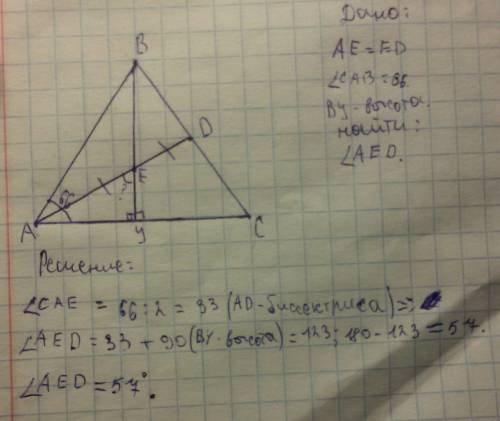 Дано:
AE=ED
∠CAB=66.
BУ-высота.
найти:
∠AED.
B
D
E
66
A
У
C
Решение:
∠CAE = 66:2 = 33 (AD-биссектриса)=>
∠AED = 33 + 90 (BУ-высота) = 123; 180-123 = 57.
∠AED = 57°.